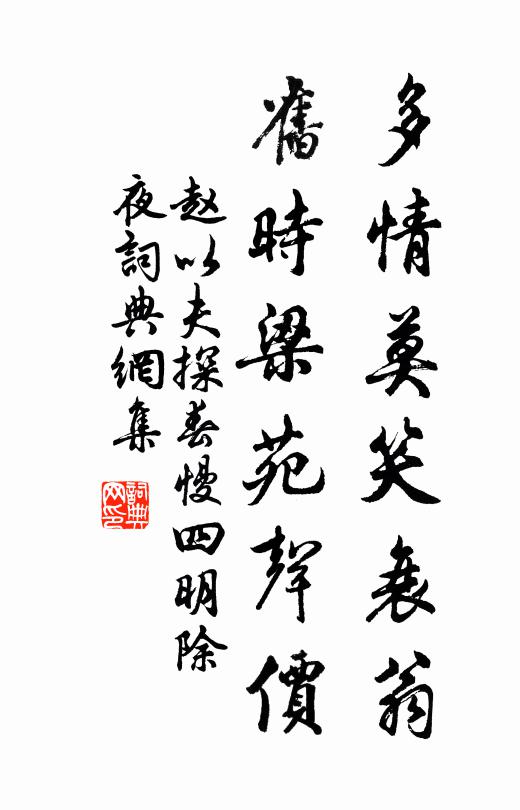 多情莫笑衰翁
舊時梁苑聲價
赵以夫探春慢四明除
夜詞典網集
詞典
网印